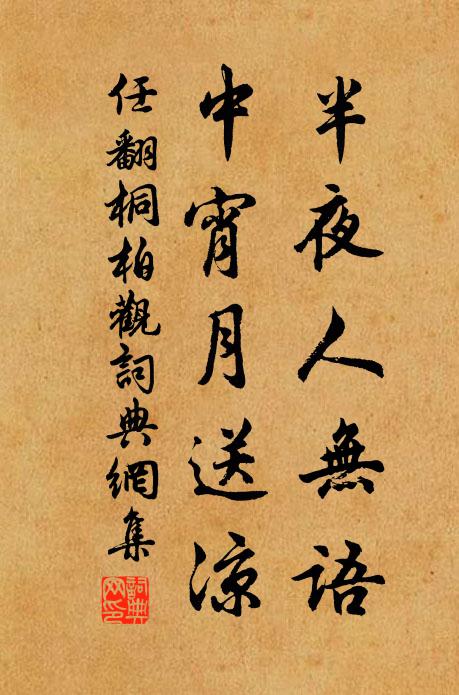 半夜人無語
中宵月送涼
任翻桐柏觀詞典網集
詞典網印